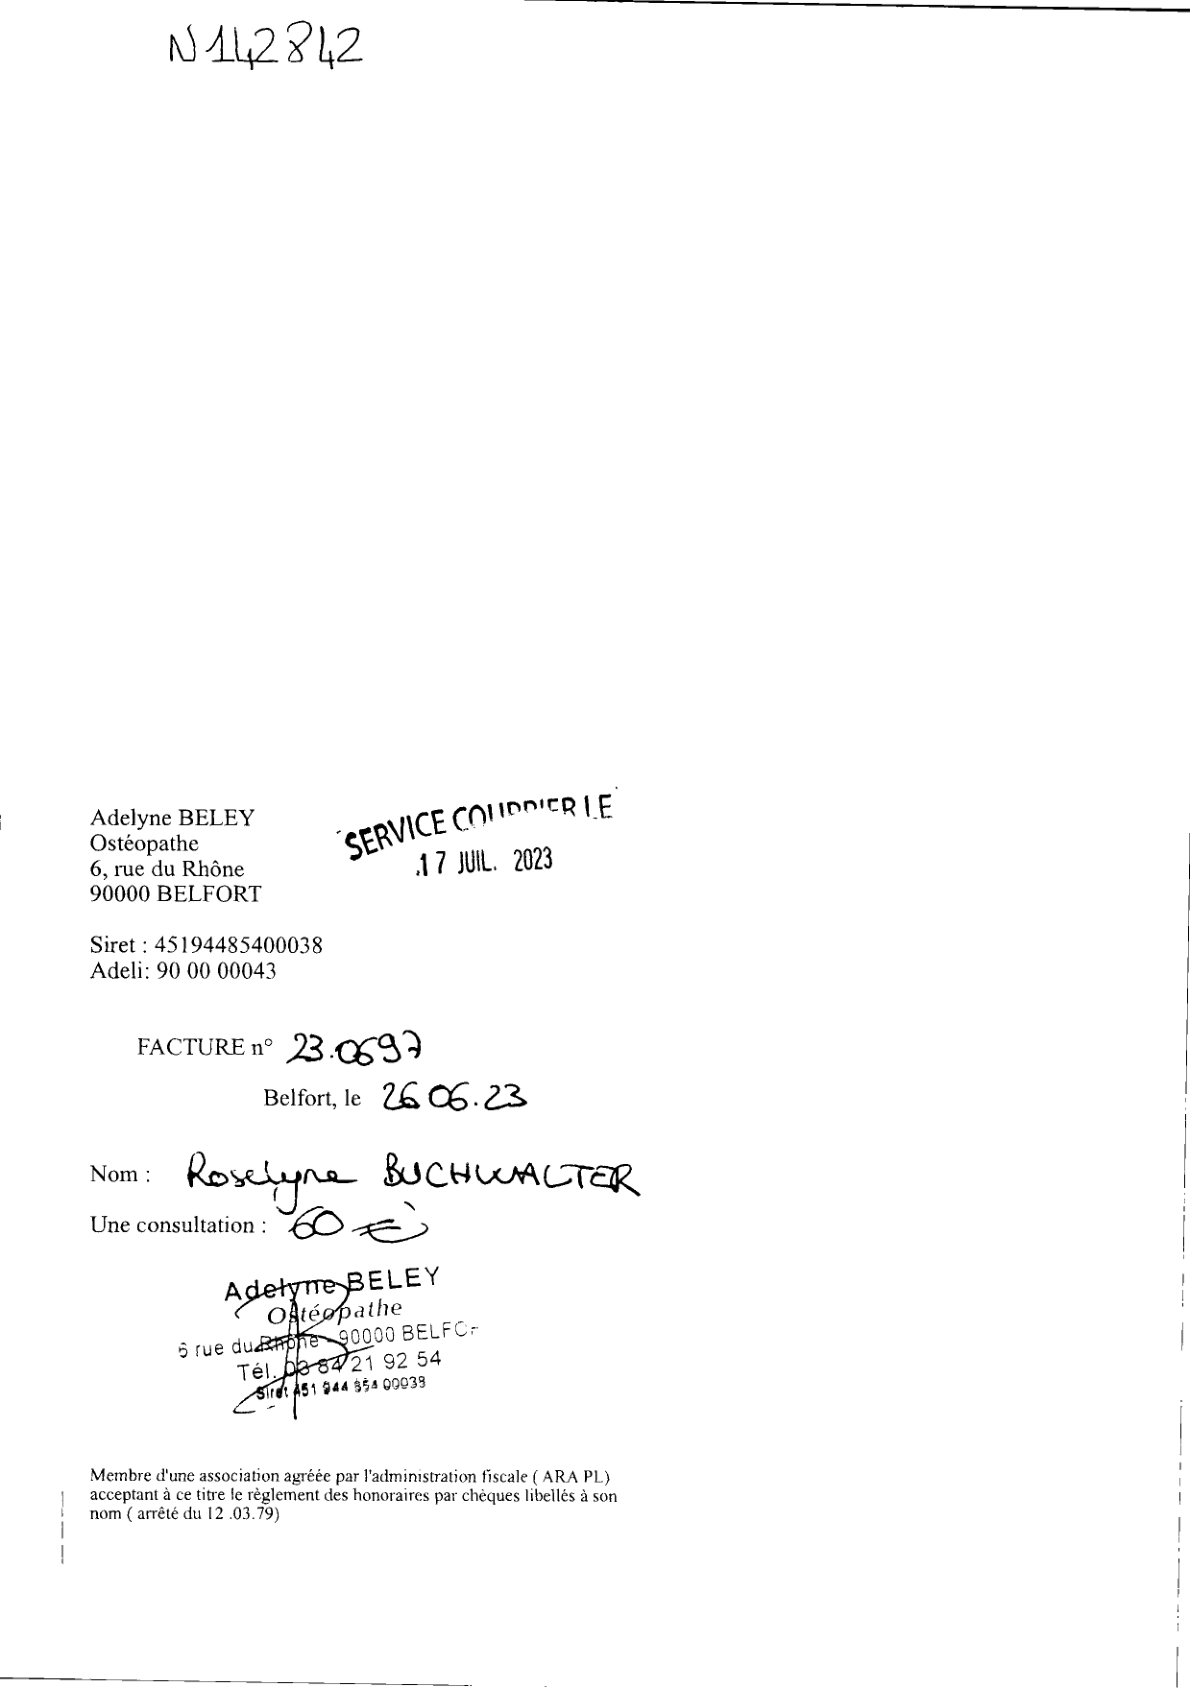 N142842
Adelyne BELEY
Ostéopathe
6, rue du Rhône
90000 BELFORT
SERVICE COURRIER LE
17 JUIL. 2023
Siret : 45194485400038
Adeli: 90 00 00043
FACTURE n° 23.0697
Belfort, le 26 06.23
Nom : Roselyne BUCHWALTER
Une consultation : 60 €
Adelyne BELEY
Ostéopathe
6 rue du Rhône 90000 BELFO
Tél. 03 84 21 92 54
Siret 451 944 854 00038
Membre d'une association agréée par l'administration fiscale ( ARA PL)
acceptant à ce titre le règlement des honoraires par chèques libellés à son
nom ( arrêté du 12 .03.79)